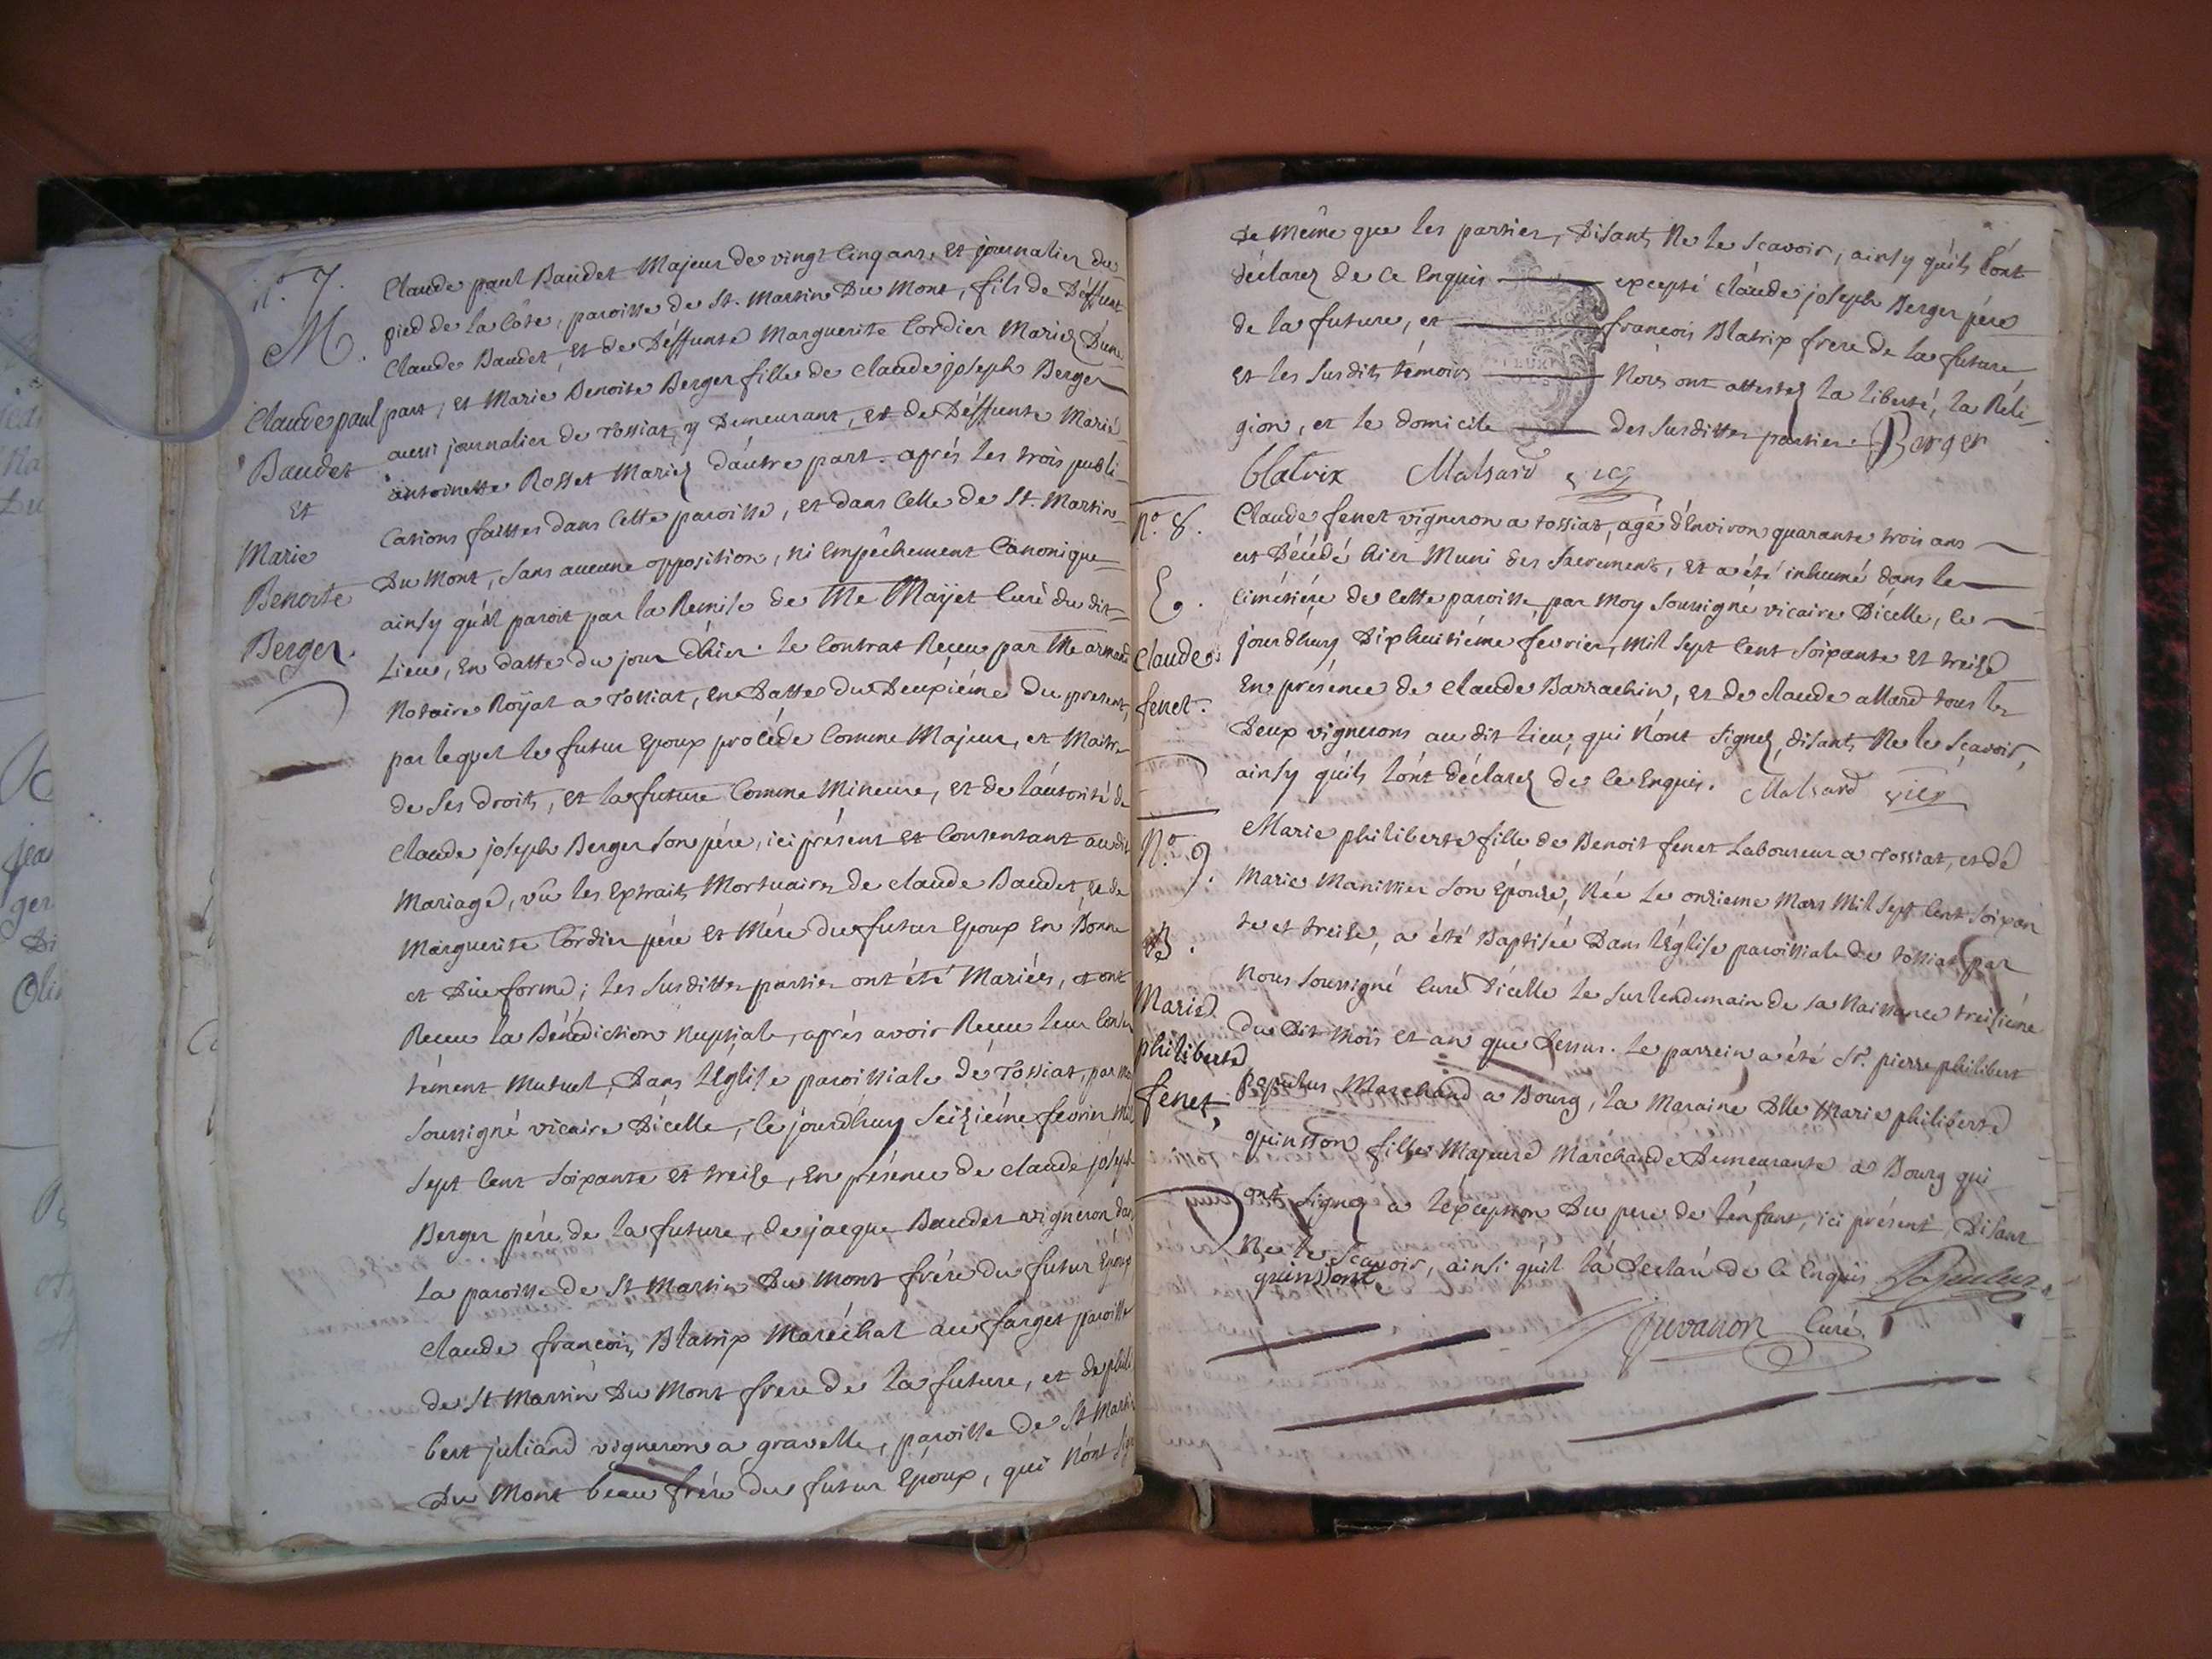 n.° 7.
M.
Claude paul
Baudet
et
Marie
Benoite
Berger.
Claude paul Baudet Majeur de vingt Cinq ans, et journalier du
pied de la Côte, paroisse de St. Martin Du Mont, fils de Déffunt
Claude Baudet, et de Déffunte Marguerite Cordier Mariez D'une
part, et Marie Benoite Berger fille de Claude joseph Berger
aussi journalier de Tossiat, y Demeurant, et de Déffunte Marie
antoinette Rosset Mariez d'autre part. aprés les trois publi-
cations faittes dans Cette paroisse, et dans Celle de St. Martin
Du Mont, sans aucune opposition, ni Empêchement Canonique
ainsy qu'il paroit par la Remise de Me Mayet Curé du dit
Lieu, En datte du jour d'hier. le Contrat Reçeu par Me armand
Notaire Royal a Tossiat, en Datte du Deuxiéme du present,
par lequel le futur Epoux procéde Comme Majeur, et Maitre
de ses droits, et la future Comme Mineure, et de l'autorité de
Claude joseph Berger son pére, ici présent et Consentant au dit
Mariage, vû les Extraits Mortuaires de Claude Baudet, et de
Marguerite Cordier pére et Mére du futur Epoux En Bonne
et Düe forme; les susdittes parties ont été Mariées, et ont
Reçeu la Bénédiction Nuptiale, aprés avoir Reçeu leur Consen
tément Mutuel, Dans l'Eglise paroissiale de Tossiat, par moy
soussigné vicaire D'icelle, le jourd'huy seiziéme fevrier Mil
sept Cent soixante et treise, En présence de Claude joseph
Berger pére de la future, de jacque Baudet vigneron dans
la paroisse de St Martin Du Mont frére du futur Epoux
Claude françois Blatrix Maréchal au farget paroisse
de St Martin Du Mont frere de la future, et de phili
bert juliand vigneron a gravelle, paroisse de St Martin
Du Mont beau frére du futur Epoux, qui N'ont signé
de Même que les parties, Disants Ne le scavoir, ainsy qu'ils l'ont
déclarez de Ce Enquis excepté Claude joseph Berger pére
de la future, et françois Blatrix frere de la future
et les susdits témoins Nous ont attestez la liberté, la Réli-
gion, et le domicile des susdittes parties. Berger
blatrix Malsard vic
N.° 8.
E.
Claude
fenet.
Claude fenet vigneron a tossiat, agé d'Environ quarante trois ans
est Décédé hier Muni des sacrement, et a été inhumé dans le
Cimétiére de Cette paroisse par Moy soussigné vicaire D'icelle, le
jourd'huy Dixhuitiéme fevrier, Mil sept Cent soixante et treise
En présence de Claude Barrachin, et de claude allard tous les
Deux vignerons au dit lieu, qui N'ont signez, disants Ne le scavoir,
ainsy qu'ils l'ont déclarez de Ce Enquis. Malsard vic
N.° 9.
B.
Marie
philiberte
fenet,
Marie philiberte fille de Benoit fenet Laboureur a Tossiat, et de
Marie Manissier son Epouse, Née Le onzieme Mars Mil sept Cent soixan
te et treise, a été Baptisée Dans l'Eglise paroissiale de tossiat par
Nous soussigné Curé D'icelle Le surlendemain de sa Naissance treiziéme
du Dit Mois et an que Dessus. Le parrein a été Sr. pierre philibert
Populus Marchand a Bourg, la Maraine Dlle Marie philiberte
quinsson fille Majeure Marchande Demeurante a Bourg qui
ont signez a l'éxception Du pere de l'enfant, ici présent, Disant
Ne le scavoir, ainsi qu'il l'a Declaré de Ce Enquis Populus
quinsson
Juvanon Curé